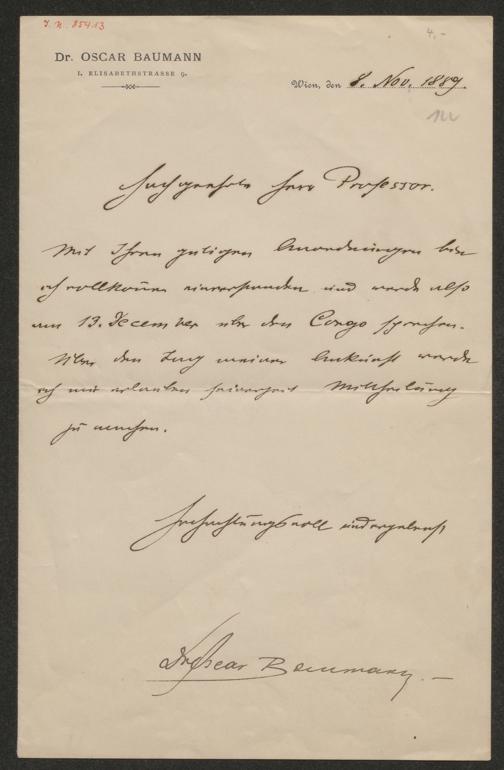 J. N. 85413
4.-
Dr. OSCAR BAUMANN
I. ELISABETHSTRASSE 9.
Wien, den 8. Nov. 1889.
Hochgeehrter Herr Professor.
Mit Ihren gütigen Anordnungen bin
ich vollkommen einverstanden und werde also
am 13. December über den Congo sprechen.
Über den Tag meiner Ankunft werde
ich mir erlauben seinerzeit Mittheilung
zu machen.
Hochachtungsvoll und ergebenst
Dr Oscar Baumann